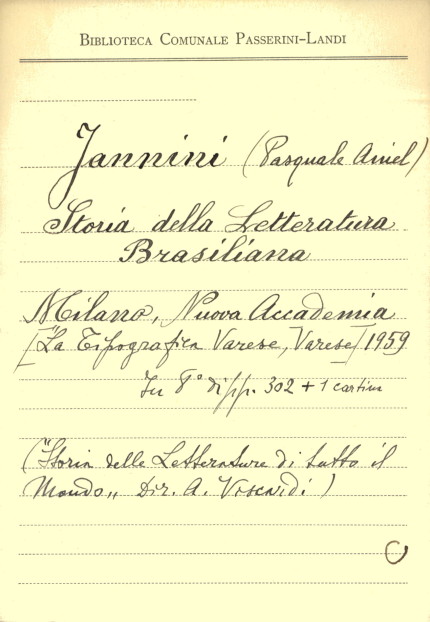 BIBLIOTECA COMUNALE PASSERINI-LANDI
Jannini (Pasquale Aniel)
Storia della Letteratura
Brasiliana
Milano, Nuova Accademia
[La Tipografica Varese, Varese] 1959
In 8° di pp. 302 + 1 cartina
("Storia delle Letterature di tutto il
Mondo„ Dir. A. Viscardi)